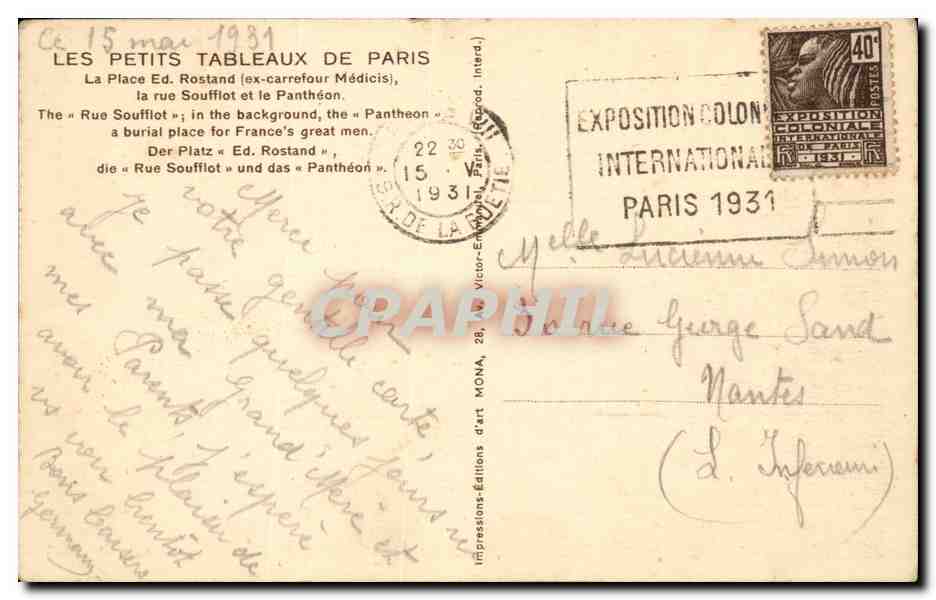 Ce 15 mai 1931
LES PETITS TABLEAUX DE PARIS
La Place Ed. Rostand (ex-carrefour Médicis),
la rue Soufflot et le Panthéon.
The « Rue Soufflot »; in the background, the « Pantheon »
a burial place for France's great men.
Der Platz « Ed. Rostand »,
die « Rue Soufflot » und das « Panthéon ».
Merci pour
votre gentille carte,
Je passe quelques jours
avec ma Grand'Mère et
mes Parents, j'espère
avoir le plaisir de
vs voir bientôt
Bons baisers
Germaine
Impressions-Éditions d'art MONA, 28, Av. Victor-Emmanuel, Paris. (Reprod. Interd.)
22 30
15 . V
1931
R. DE LA BOETIE
EXPOSITION COLON
INTERNATIONAL
PARIS 1931
40c
POSTES
EXPOSITION
COLONIALE
INTERNATIONALE
DE PARIS
1931
Melle Lucienne Simon
rue George Sand
Nantes
(L. Inférieure)
CPAPHIL